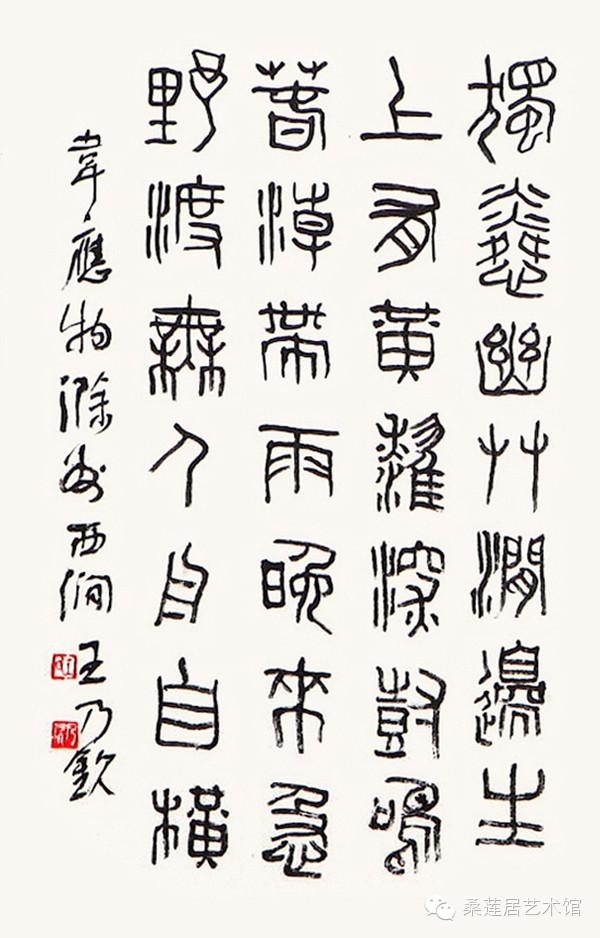 獨憐幽艸澗邊生
上有黃鸝深樹鳴
春潮帶雨晚來急
野渡無人舟自橫
韋應物滁州西澗 王乃欽
桑莲居艺术馆